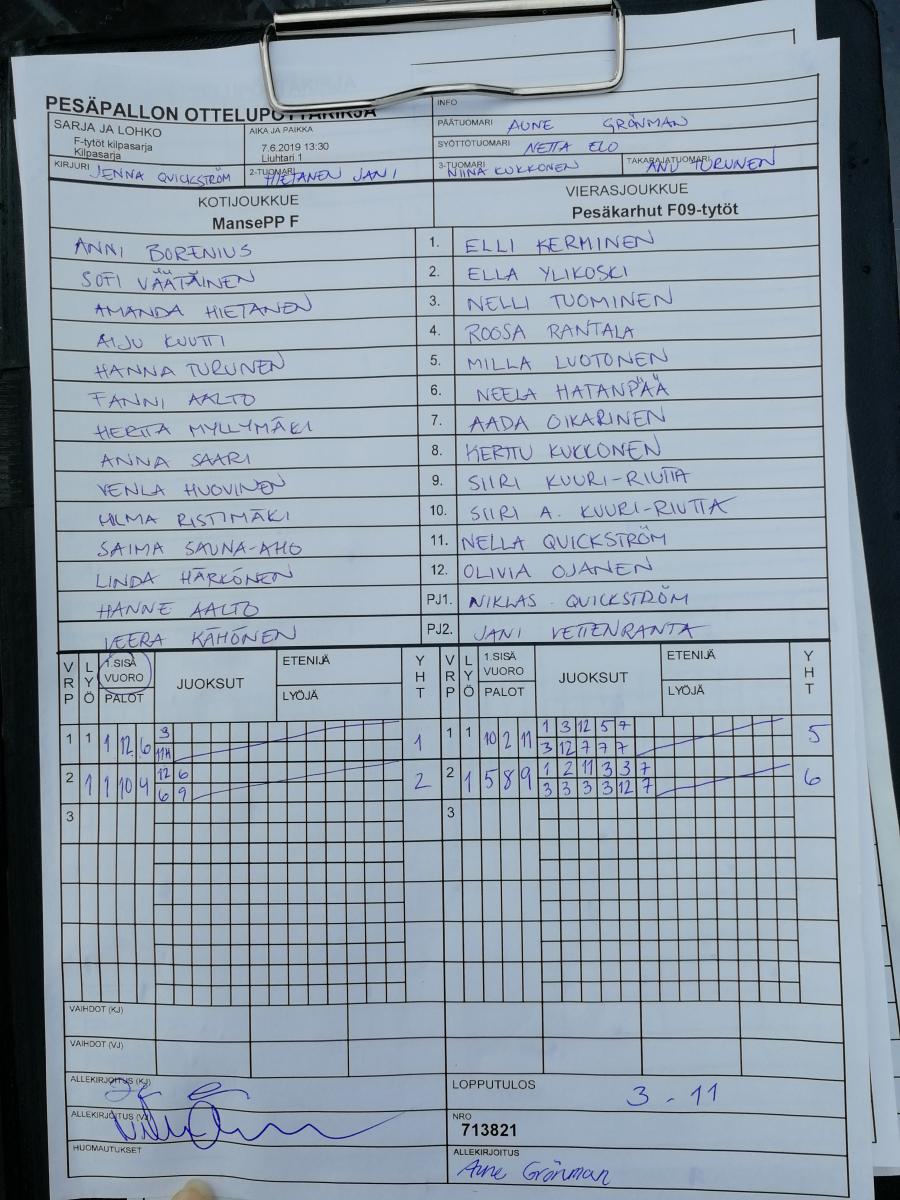 PESÄPALLON OTTELUPÖYTÄKIRJA
SARJA JA LOHKO
F-tytöt kilpasarja
Kilpasarja
AIKA JA PAIKKA
7.6.2019 13:30
Liuhtari 1
KIRJURI JENNA QUICKSTRÖM
2-TUOMARI HIETANEN JANI
INFO
PÄÄTUOMARI AUNE GRÖNMAN
SYÖTTÖTUOMARI NETTA ELO
3-TUOMARI NIINA KUKKONEN
TAKARAJATUOMARI ANU TURUNEN
KOTIJOUKKUE
MansePP F
VIERASJOUKKUE
Pesäkarhut F09-tytöt
ANNI BORENIUS 1. ELLI KERMINEN
SOFI VÄÄTÄINEN 2. ELLA YLIKOSKI
AMANDA HIETANEN 3. NELLI TUOMINEN
AIJU KUUTTI 4. ROOSA RANTALA
HANNA TURUNEN 5. MILLA LUOTONEN
FANNI AALTO 6. NEELA HATANPÄÄ
HERTTA MYLLYMÄKI 7. AADA OIKARINEN
ANNA SAARI 8. KERTTU KUKKONEN
VENLA HUOVINEN 9. SIIRI KUURI-RIUTTA
HILMA RISTIMÄKI 10. SIIRI A. KUURI-RIUTTA
SAIMA SAUNA-AHO 11. NELLA QUICKSTRÖM
LINDA HÄRKÖNEN 12. OLIVIA OJANEN
HANNE AALTO PJ1. NIKLAS QUICKSTRÖM
VEERA KÄHÖNEN PJ2. JANI VETTENRANTA
VRP LYÖ 1.SISÄ VUORO PALOT JUOKSUT ETENIJÄ LYÖJÄ YHT VRP LYÖ 1.SISÄ VUORO PALOT JUOKSUT ETENIJÄ LYÖJÄ YHT
1 1 1 12 6 3 1 1 1 10 2 11 1 3 12 5 7 5
11H 3 12 7 7 7
2 1 1 10 4 12 6 2 2 1 5 8 9 1 2 11 3 3 7 6
6 9 3 3 3 3 12 7
3 3
VAIHDOT (KJ)
VAIHDOT (VJ)
ALLEKIRJOITUS (KJ)
ALLEKIRJOITUS (VJ)
HUOMAUTUKSET
LOPPUTULOS
3 - 11
NRO
713821
ALLEKIRJOITUS
Aune Grönman